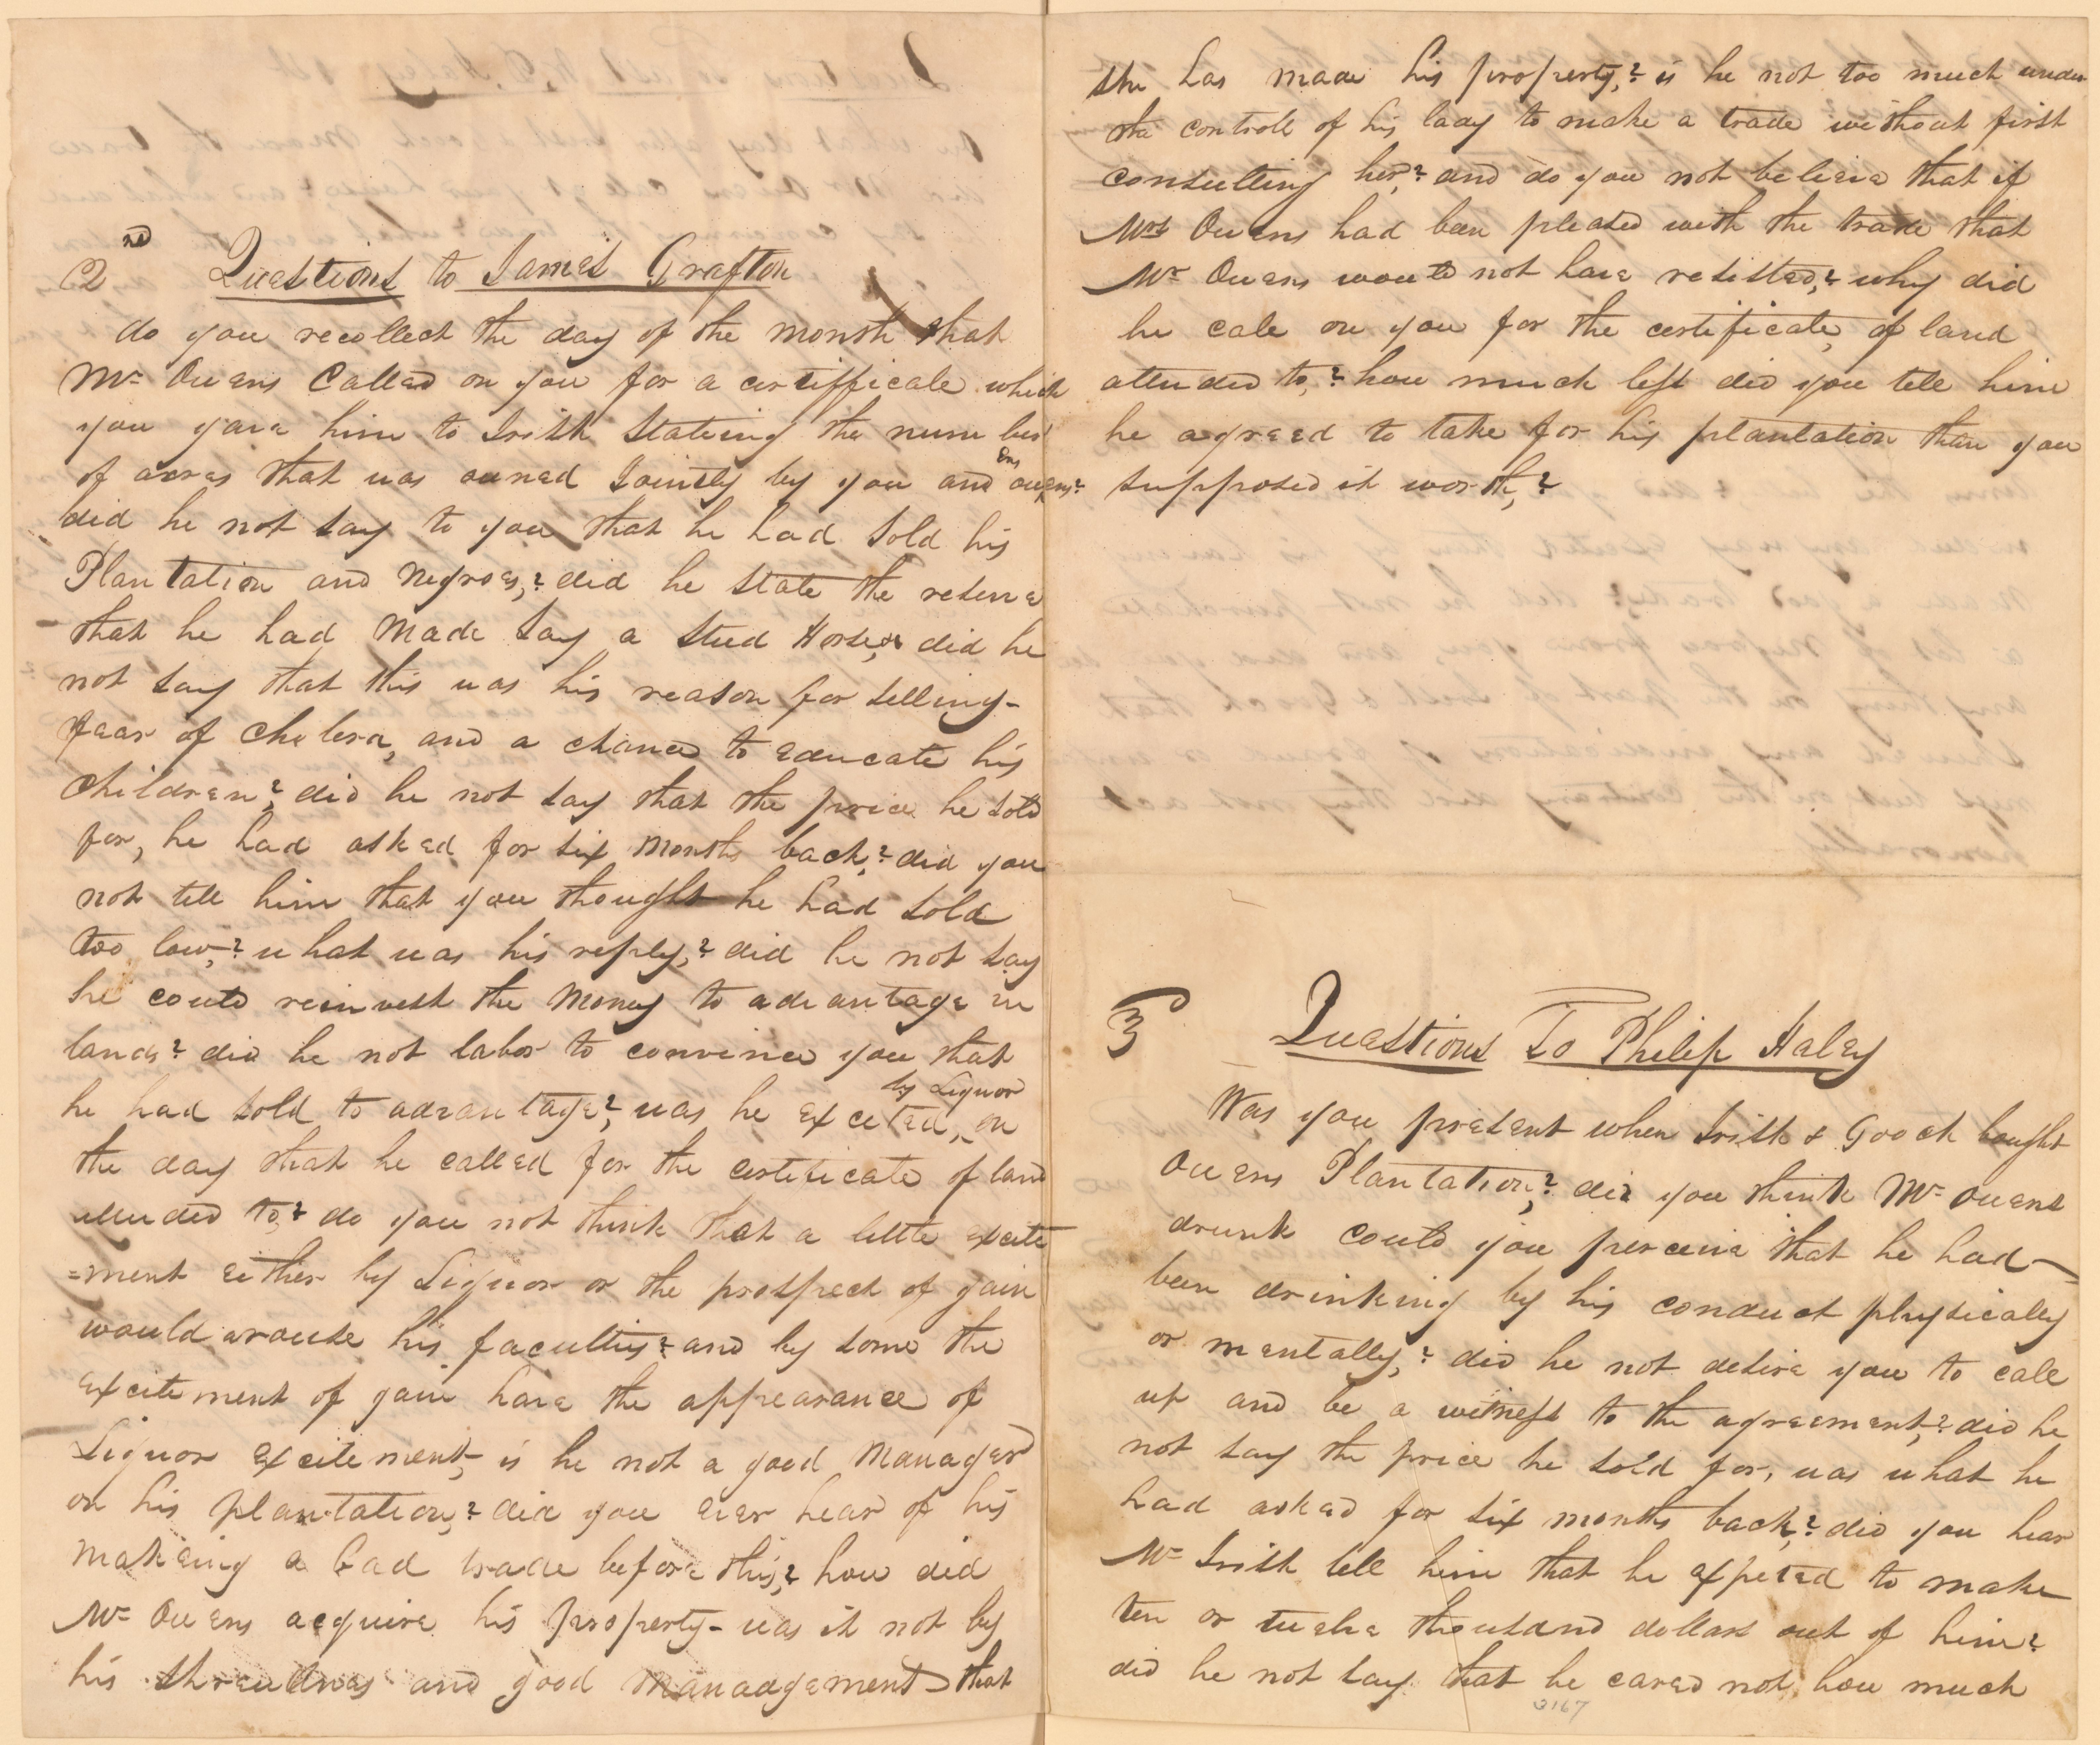 2nd Questions to James Grafton
do you recollect the day of the month that
Mr Owens Called on you for a certifficate which
you gave him to Irish Stateing the number
of acres that was owned Jointly by you and Owens?
did he not say to you that he had Sold his
Plantation and Negroes,? did he state the reserve
that he had made say a Stud Horse,? did he
not say that this was his reason for selling-
fear of Cholera, and a chance to educate his
Children,? did he not say that the price he sold
for, he had asked for six months back,? did you
not tell him that you thought he had sold
too low,? what was his reply,? did he not say
he could reinvest the money to advantage in
lands? did he not labor to convince you that
he had sold to advantage,? was he excited, by Liquor on
the day that he called for the certificate of land
alluded to,? do you not think that a little excite
=ment either by Liquor or the prospect of gain
would arouse his faculties? and by some the
excitement of gain have the appearance of
Liquor excitement, is he not a good manager
on his plantation,? did you ever hear of his
makeing a bad trade before this,? how did
Mr Owens acquire his property- was it not by
his shrewdness and good manadgement that
the has made his property,? is he not too much under
the controll of his lady to make a trade without first
consulting her,? and do you not believe that if
Mrs Owens had been pleased with the trade that
Mr Owens would not have resisted,? why did
he cale on you for the certificate, of land
alluded to,? how much less did you tell him
he agreed to take for his plantation than you
supposed it worth,?
3 Questions To Philip Haley
Was you present when Irish & Gooch bought
Owens Plantation,? did you think Mr Owens
drunk could you perceive that he had
been drinking by his conduct physically
or mentally,? did he not desire you to cale
up and be a witness to the agreement,? did he
not say the price he sold for, was what he
had asked for six months back,? did you hear
Mr Irish tell him that he expeted to make
ten or twelve thousand dollars out of him?
did he not say that he cared not how much
3167